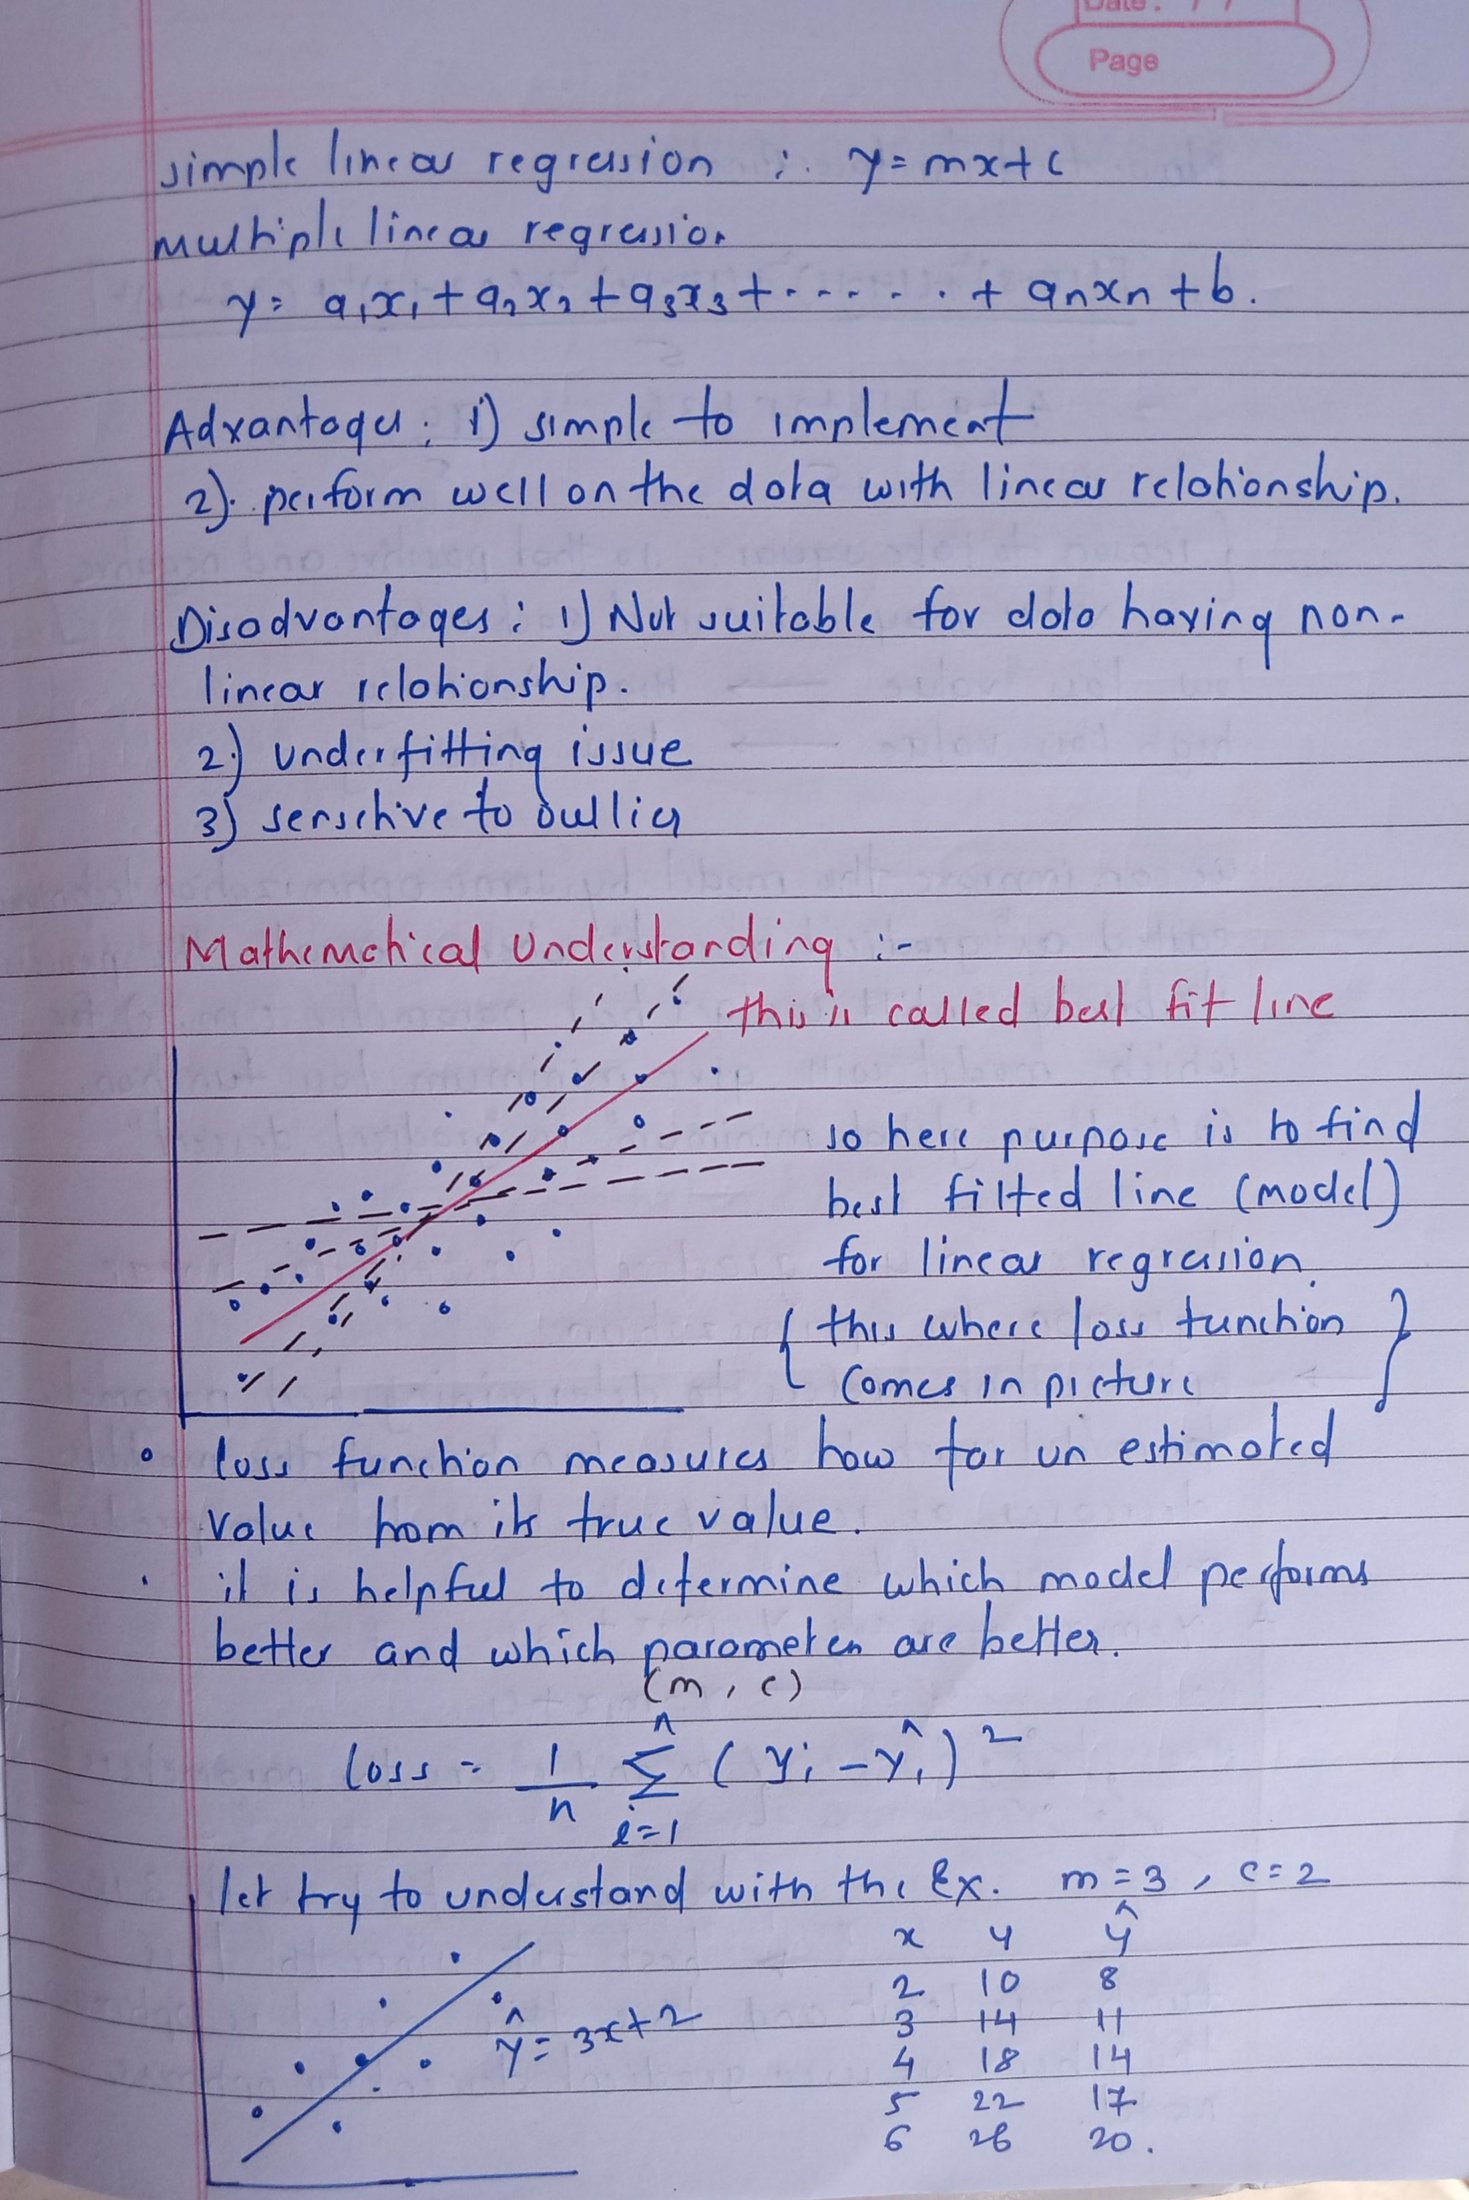 Date: / /
Page
simple linear regression : y = mx + c
multiple linear regression
y = a₁x₁ + a₂x₂ + a₃x₃ + ...... + aₙxₙ + b.
Advantages: 1) simple to implement
2). perform well on the data with linear relationship.
Disadvantages: 1) Not suitable for data having non-
linear relationship.
2.) underfitting issue
3) sensitive to outlier
Mathematical Understanding :-
this is called best fit line
so here purpose is to find
best fitted line (model)
for linear regression.
{ this where loss function
comes in picture }
• loss function measures how far an estimated
value from its true value.
• it is helpful to determine which model performs
better and which parameters are better.
(m, c)
loss = 1/n Σ_{i=1}^{n} (yᵢ - ŷᵢ)²
let try to understand with the Ex. m = 3, c = 2
x y ŷ
2 10 8
3 14 11
ŷ = 3x + 2
4 18 14
5 22 17
6 26 20.